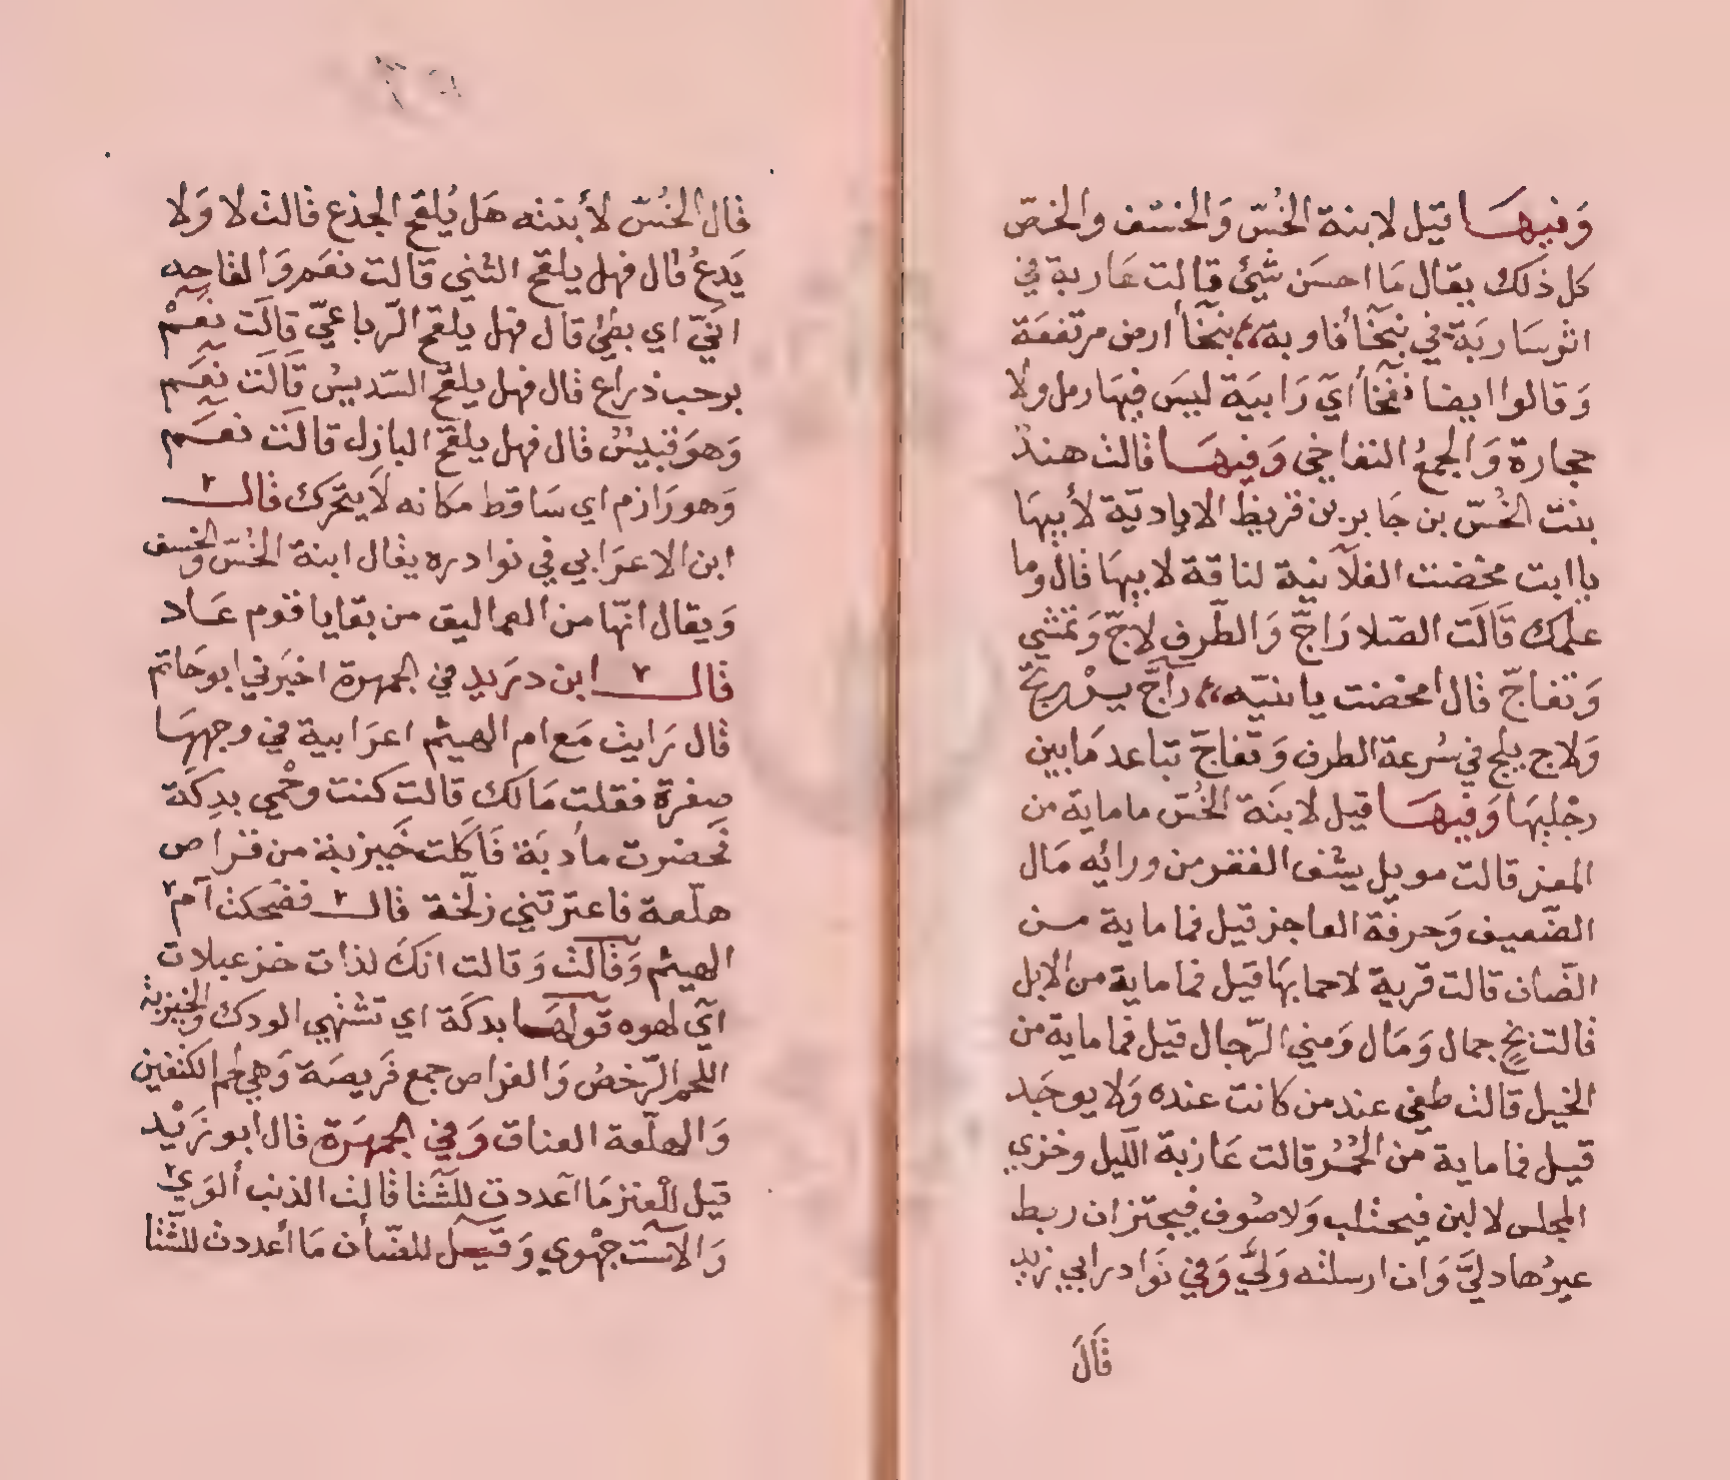 وَفيهَا قيل لابنة الخُسّ وَالخسف والخصّ
كل ذلك يقال مَا احسَن شيئ قالت غاربة في
اثر سَاربَة في نبخأ قاوية نبخأ ارض مرتفعَة
وَقالوا ايضا نفخأ ايّ رَابيَة ليسَ فيهَا رمل ولا
حجارة وَالجمعُ النفاخي وَفيهَا قالت هندٌ
بنت الخُسّ بن حَابر بن قريظ الايَاديّة لأبيهَا
ياابت مخضت الفلآنية لناقة لابيهَا قال وما
علمك قَالَت الصّلا رَاجّ وَالطّرف لاجّ وَتمشي
وَتفاجّ قال امخضت يابنيّه راجّ يرْتج
وَلاج يلج في سُرعة الطرف وَتفاجّ تباعد مَابين
رجليهَا وَفيهَا قيل لابنَة الخُسّ ماماية من
المعز قالت مويل يشف الفقر من ورائه مَال
الضّعيف وَحرفة العاجز قيل فماماية مـن
الضّان قالت قرية لاحمابهَا قيل فماماية من الابل
قالت بخٍ جمال وَمَال وَمني الرّجال قيل فماماية من
الخيل قالت طغى عندمن كانت عنده وَلايوجَد
قيل فماماية من الحُمُر قالت عَازبة الليل وخزي
المجلس لالبن فيحتلب وَلاصُوف فيجتز ان ربط
عيرُها دليَّ وَان ارسلته وَليَّ وَفي نَوادر ابي زيد
قَالَ
قال الخُسّ لأبنته هَل يُلقح الجذع قالت لا وَلا
يَدعُ قال فهل يلقح الثني قالت نعَم وَالقاحه
انَيّ اي بطيُ قال فهل يلقح الرّباعيّ قالَت نعَمْ
برحب ذراع قال فهل يلقح السّديسُ قَالَت نعَم
وَهوَ قبيسُ قال فهل يلقح البازل قالَت نعَـم
وَهورَازم اي سَاقط مكانه لاَيتحَرك قالـ
ابن الاعرَابي في نوادره يقال ابنة الخُسّ وَالخسف
وَيقال انّها من العماليق من بقايا قوم عَـاد
قالـ ابن دريد في الجمهرة اخبَرني ابوحَاتم
قال رَايت مَع ام الهيثم اعرَابية في وجههَا
صفرة فقلت مَالك قالت كنت وحْمي بدِكَة
نَحضرت مأدبَة فَاكَلت خَيزبة من فـراص
هلّعة فاعترتني زلّخة قالـ فضحكت أم
الهيثم وَقالت وَقالت انكَ لذات خزعبلات
آيَ لهوه قولهـا بدكَة اي تشتهي الودك وَالخيزبة
اللّحم الرّخصُ وَالفراص جمع فَريصَة وَهي لحم الكتفين
وَالهلّعة العناق وَفي الجمهَرة قال ابو زَيْد
قيل للْعنز مَا اعددت للشّتا قالت الذنب ألوَي
وَالآست جهْوي وَقيـل للضّأن مَا أعددت للشّتا